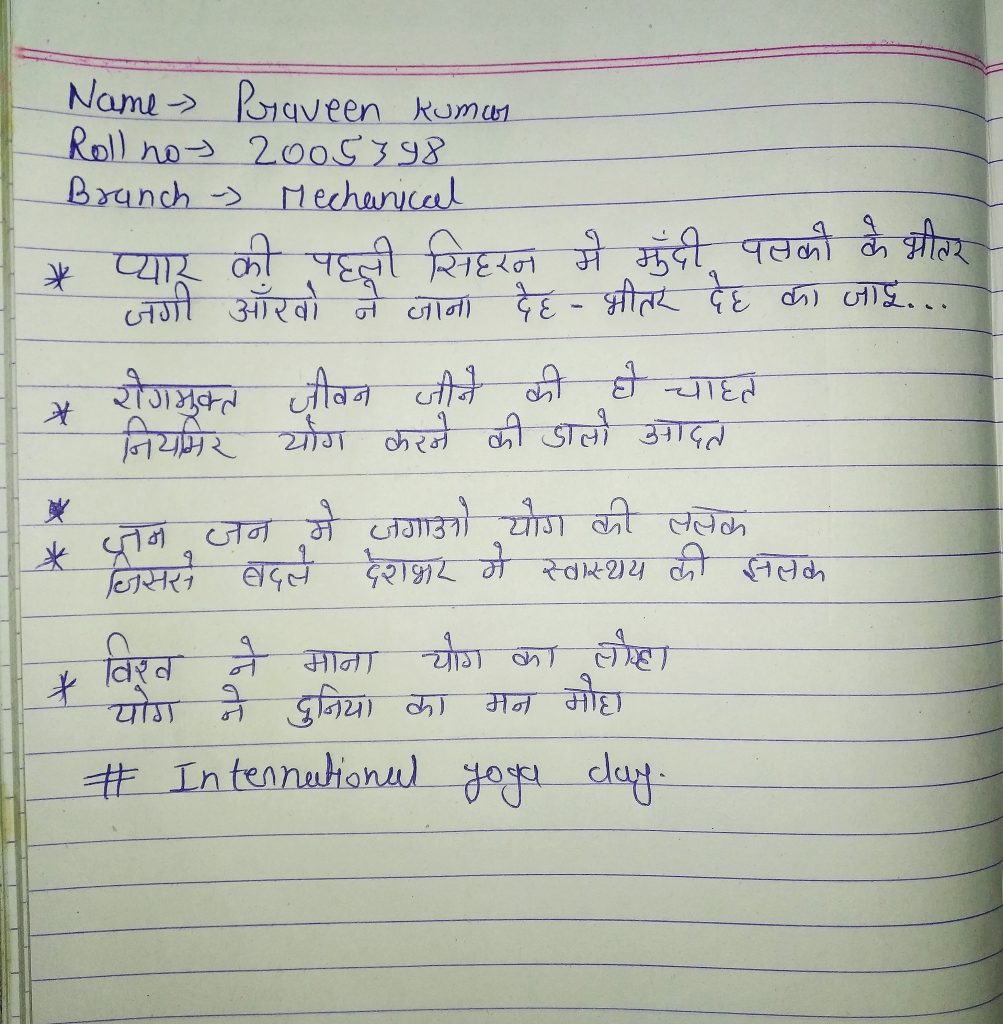 Name → Praveen Kumar
Roll no → 2005398
Branch → Mechanical
* प्यार की पहली सिहरन मे मुँदी पलको के भीतर
जगी आँखो ने जाना देह - भीतर देह का जाइ...
* रोगमुक्त जीवन जीने की हो चाहत
नियमिर योग करने की डालो आदत
* जन जन मे जगाओ योग की ललक
जिससे बदले देशभर मे स्वास्थय की झलक
* विश्व ने माना योग का लोहा
योग ने दुनिया का मन मोहा
# International yoga day.